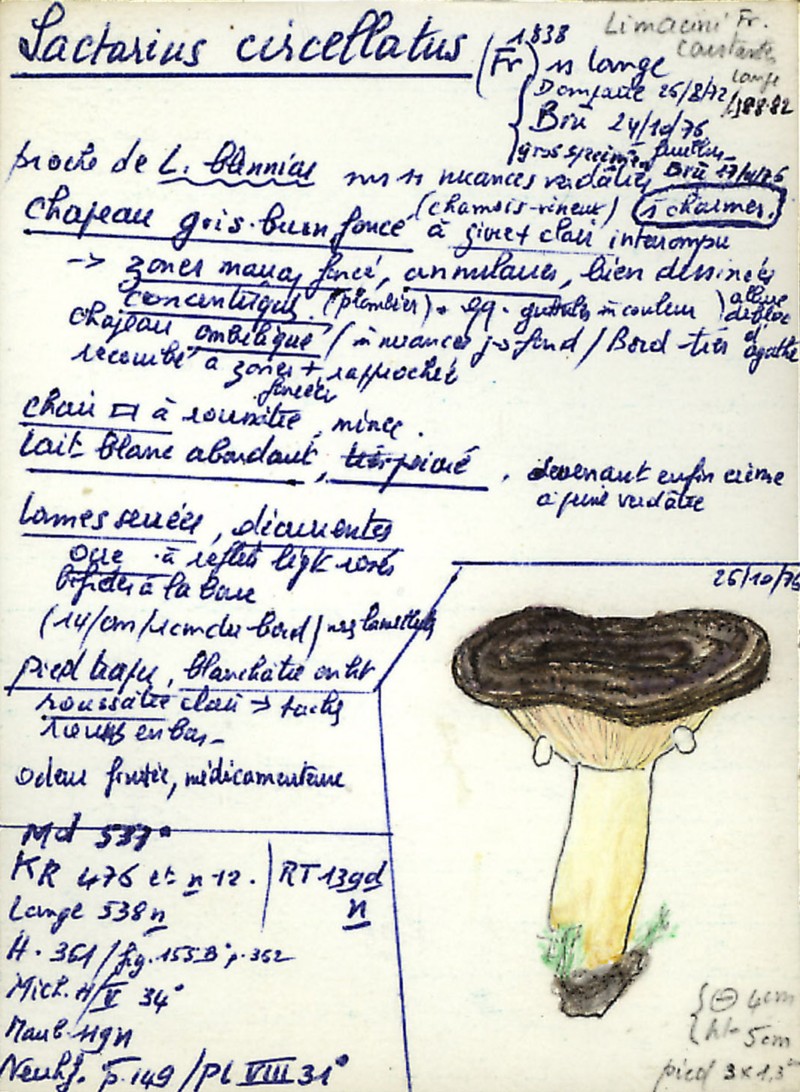 Lactarius circellatus (Fr) 1838
ss lange
Limacini Fr.
Constantes
lange
Dompaire 26/8/72 / 88.82
Brû 24/10/76
gros spécimen feuillus
Brû 17/10/76
proche de L. blennius ms ss nuances verdâtres
(chamois-vineux) s/charmes.
chapeau gris-brun foncé à givre + clair interrompu
-> zones mauves foncé, annulaires, bien dessinées
concentriques. (plombier) + qq. guttules m couleur ) allure de bloc d'agathe
chapeau ombiliqué / m nuances j-s fond / Bord très
recourbé à zones + rapprochées
foncées
chair □ à roussâtre, mince.
lait blanc abondant, très poivré, devenant enfin crème
à peine verdâtre
lames serrées, décurrentes
ocre - à reflets légt rosés
bifides à la base
(14/cm/1cm du bord) nes lamellules
pied trapu, blanchâtre ou bt
roussâtre clair -> taches
rousses en bas -
odeur fruitée, médicamenteuse
26/10/76
Md 537°
KR 476 et n-12. | RT 13gd
n
Lange 538n
H. 361 / fig. 155B p. 362
Mich. N/V 34°
Maub. ngn
Neuhf. p. 149 / Pl VIII 31°
⊖ 4cm
ht 5cm
pied 3 x 1,3